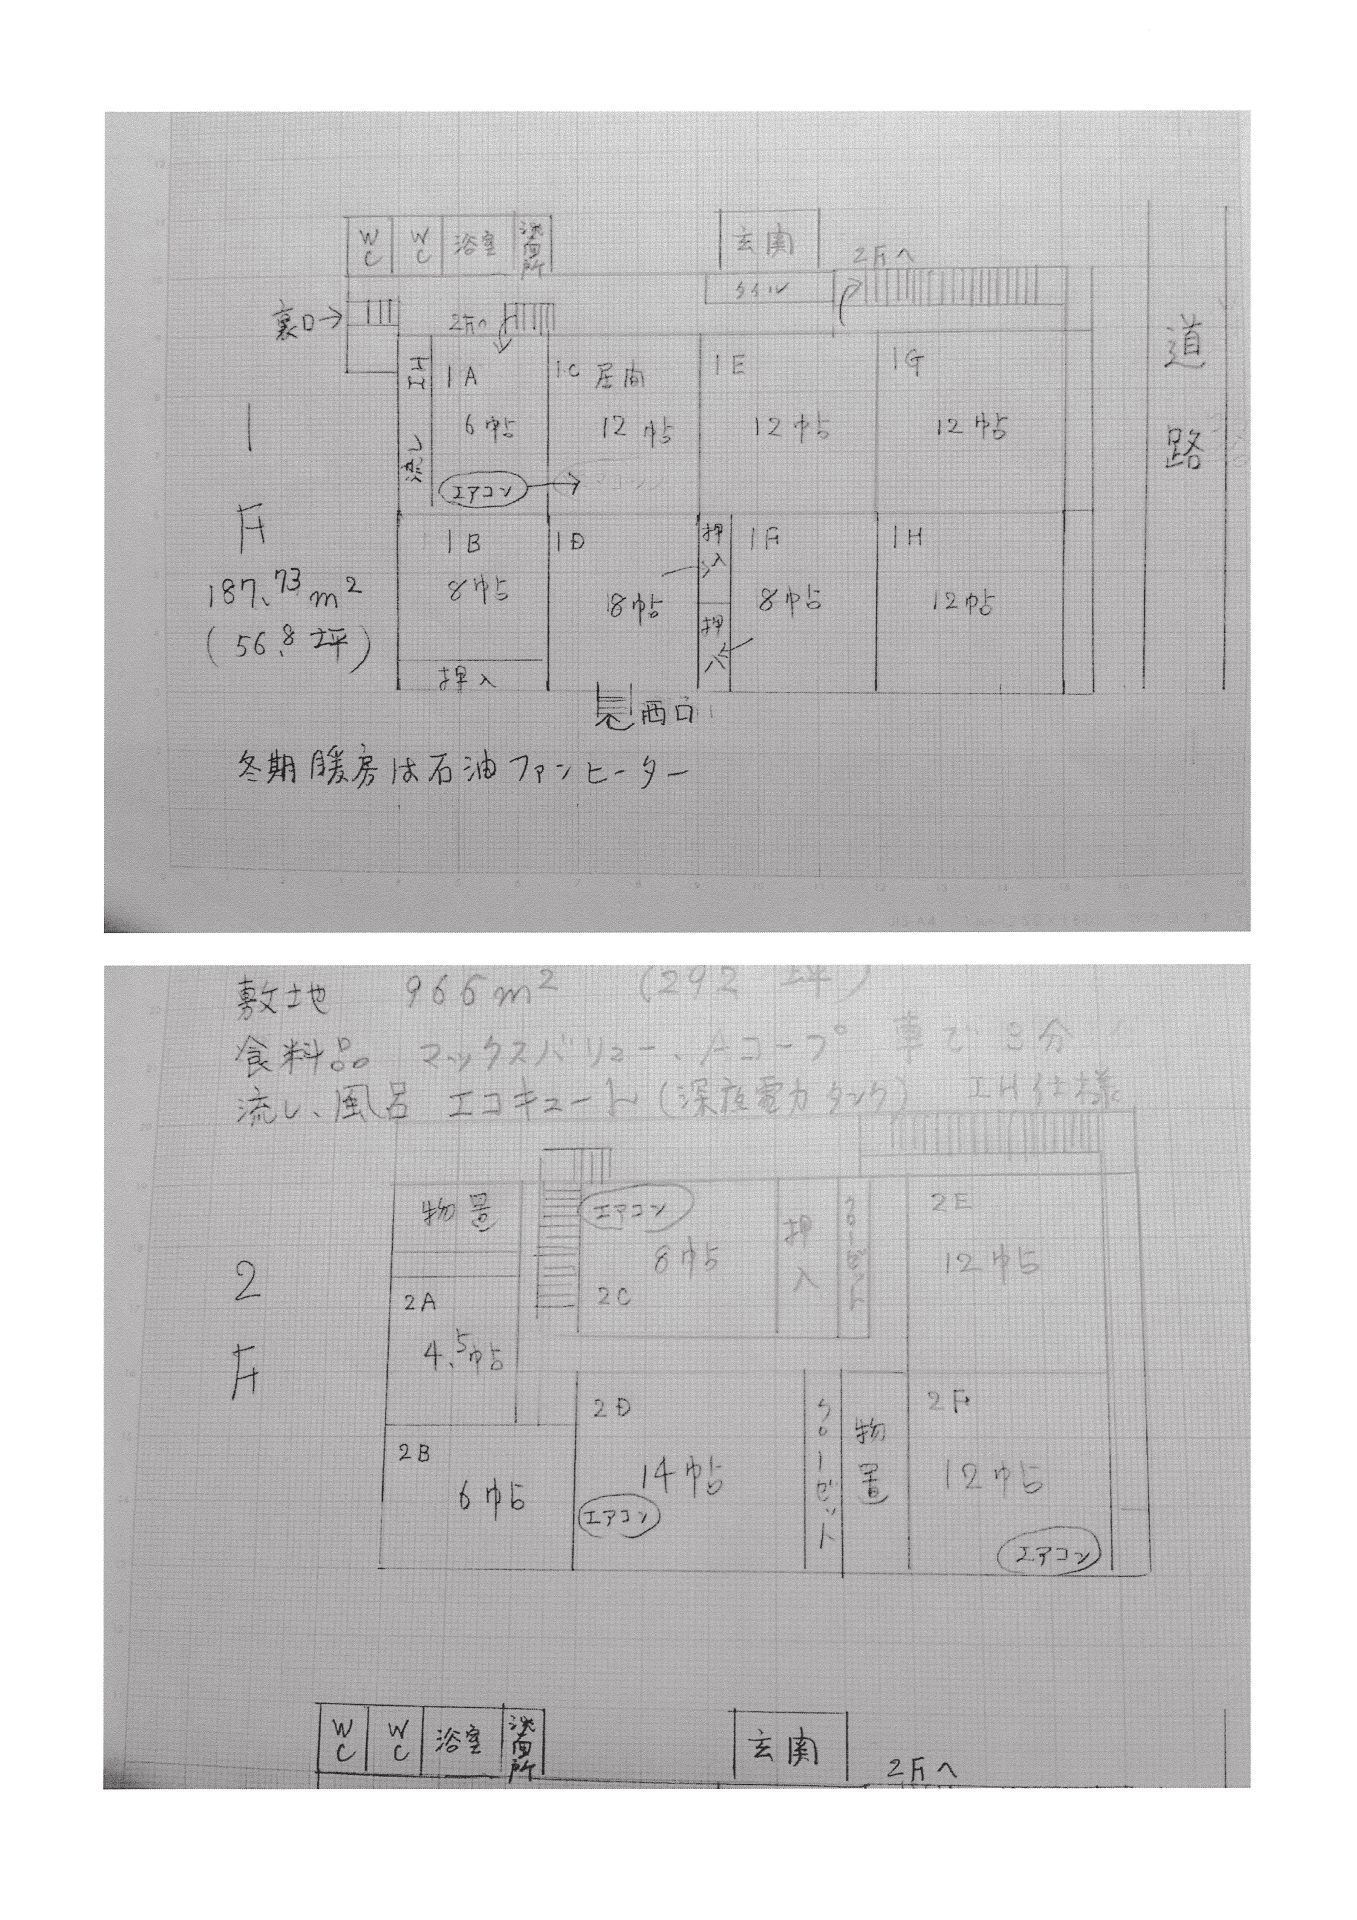 WC WC 浴室 洗面所 玄関
2Fへ
タイル
裏口→ 2Fへ
道路
IH 1A 1C 居間 1E 1G
6帖 12帖 12帖 12帖
流し
エアコン
1F
1B 1D 押入 1F 1H
8帖 8帖 8帖 12帖
187.73m²
(56.8坪)
押入
押入
西口
冬期暖房は石油ファンヒーター
敷地 966m² (292坪)
食料品 マックスバリュー、Aコープ 車で3分
流し、風呂 エコキュート(深夜電力タンク) IH仕様
物置 エアコン 押入 クローゼット 2E
8帖 12帖
2F
2A 2C
4.5帖
2D クローゼット 物置 2F
2B
6帖 14帖 12帖
エアコン
エアコン
WC WC 浴室 洗面所 玄関
2Fへ